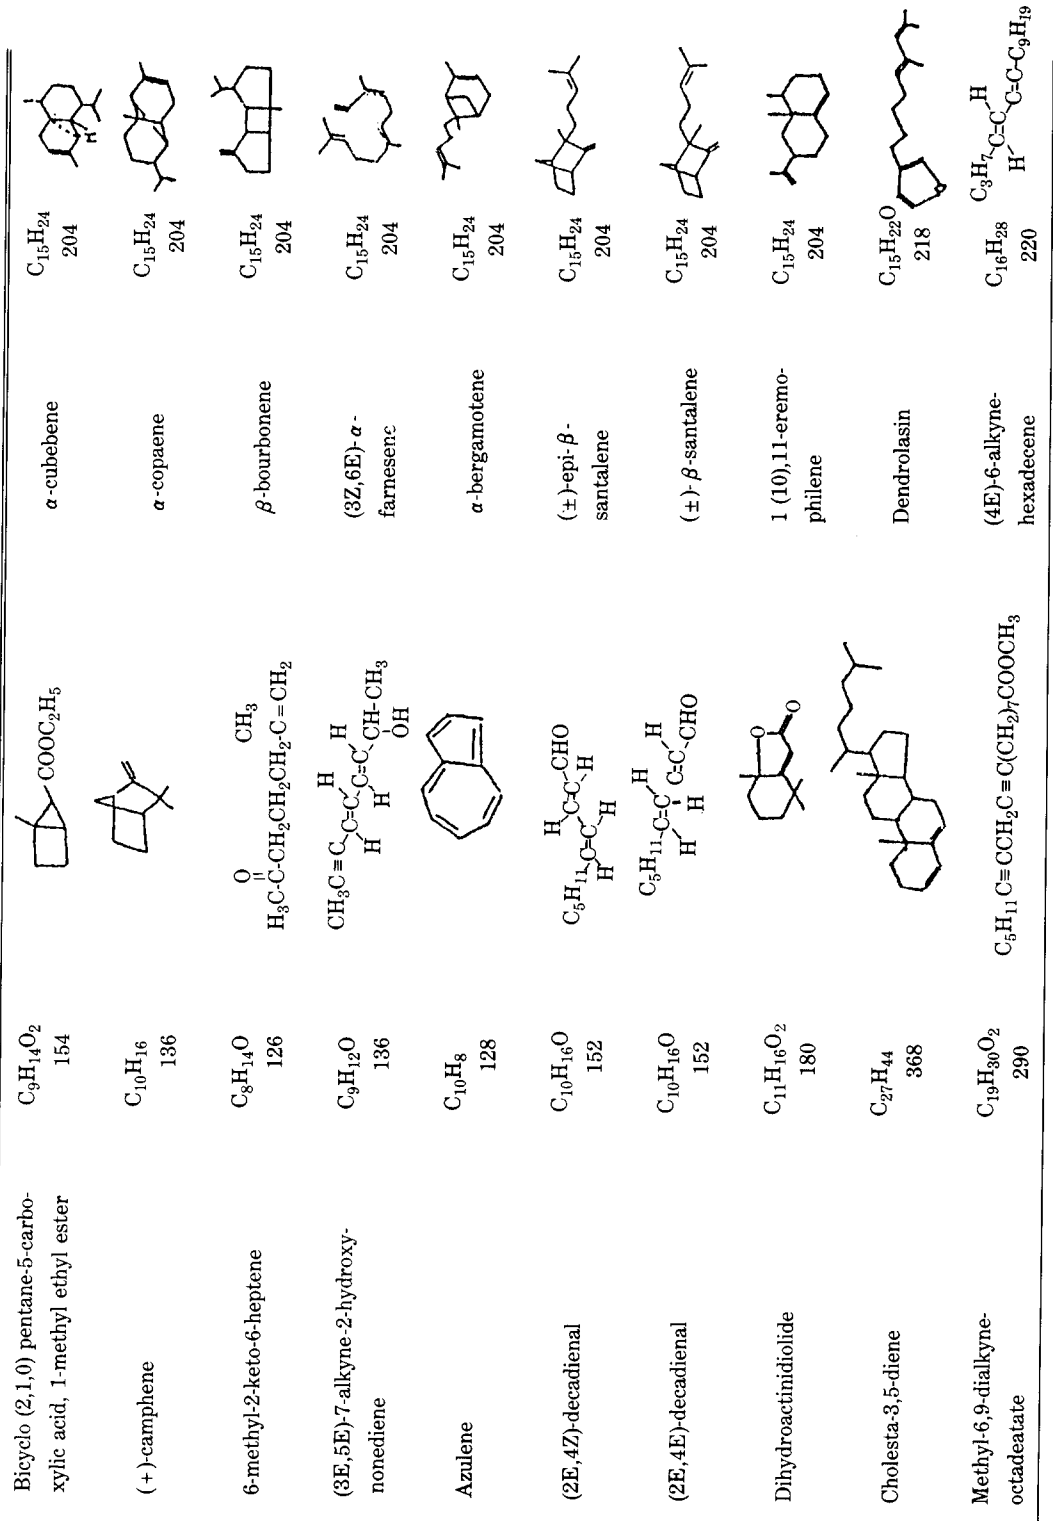 Bicyclo (2,1,0) pentane-5-carbo-
xylic acid, 1-methyl ethyl ester
C9H14O2
154
COOC2H5
α-cubebene
C15H24
204
H
(+)-camphene
C10H16
136
α-copaene
C15H24
204
6-methyl-2-keto-6-heptene
C8H14O
126
O CH3
H3C-C-CH2CH2CH2-C=CH2
β-bourbonene
C15H24
204
(3E,5E)-7-alkyne-2-hydroxy-
nonediene
C9H12O
136
H H
CH3C≡C C=C C=C CH-CH3
H H OH
(3Z,6E)-α-
farnesene
C15H24
204
Azulene
C10H8
128
α-bergamotene
C15H24
204
(2E,4Z)-decadienal
C10H16O
152
H CHO
C5H11 C=C C=C
H H H
(±)-epi-β-
santalene
C15H24
204
(2E,4E)-decadienal
C10H16O
152
C5H11 H H
C=C C=C
H H CHO
(±)-β-santalene
C15H24
204
Dihydroactinidiolide
C11H16O2
180
O
O
1 (10),11-eremo-
philene
C15H24
204
Cholesta-3,5-diene
C27H44
368
Dendrolasin
C15H22O
218
Methyl-6,9-dialkyne-
octadeatate
C19H30O2
290
C5H11C≡CCH2C≡C(CH2)7COOCH3
(4E)-6-alkyne-
hexadecene
C16H28
220
C3H7 H
C=C
H C=C-C9H19